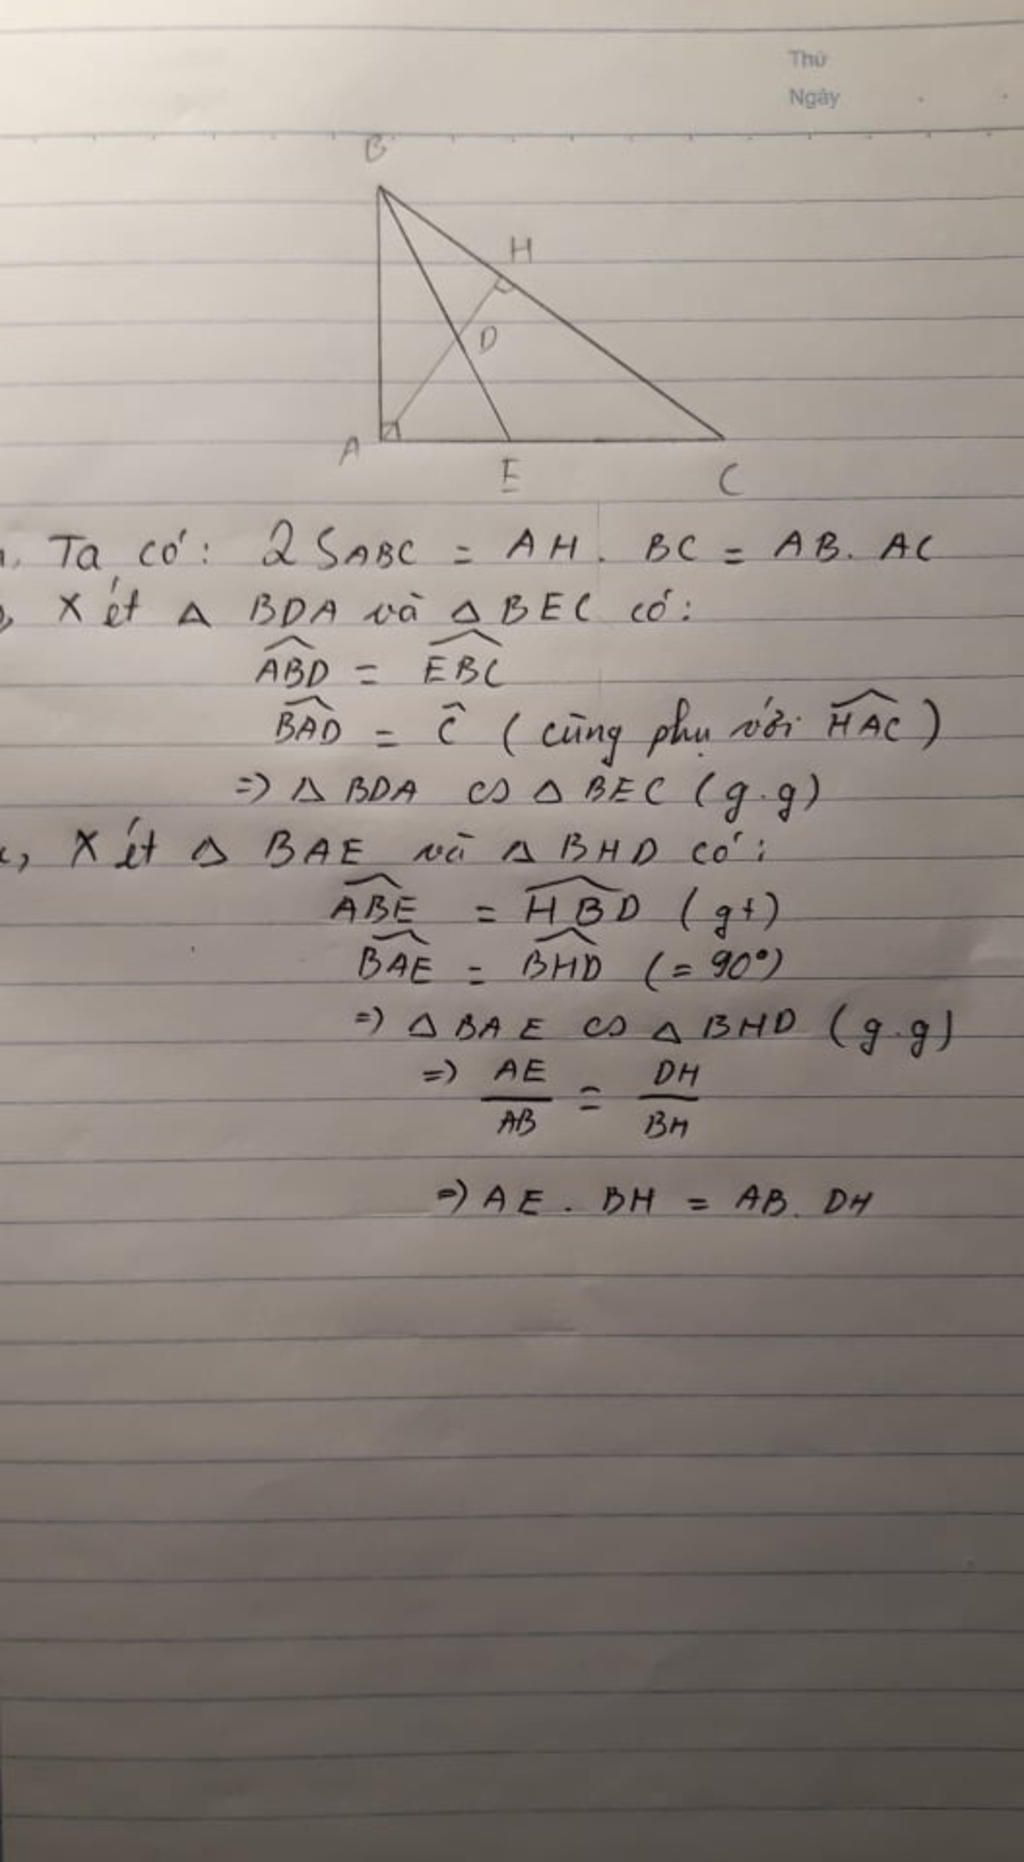 Thứ
Ngày
B
H
D
A
E
C
Ta có: 2SABC = AH. BC = AB. AC
Xét △ BDA và △ BEC có:
ABD = EBC
BAD = Ĉ (cùng phụ với HAC)
=> △ BDA ∽ △ BEC (g.g)
c, Xét △ BAE và △ BHD có:
ABE = HBD (gt)
BAE = BHD (= 90°)
=> △ BAE ∽ △ BHD (g.g)
=> AE/AB = DH/BH
=> AE. BH = AB. DH